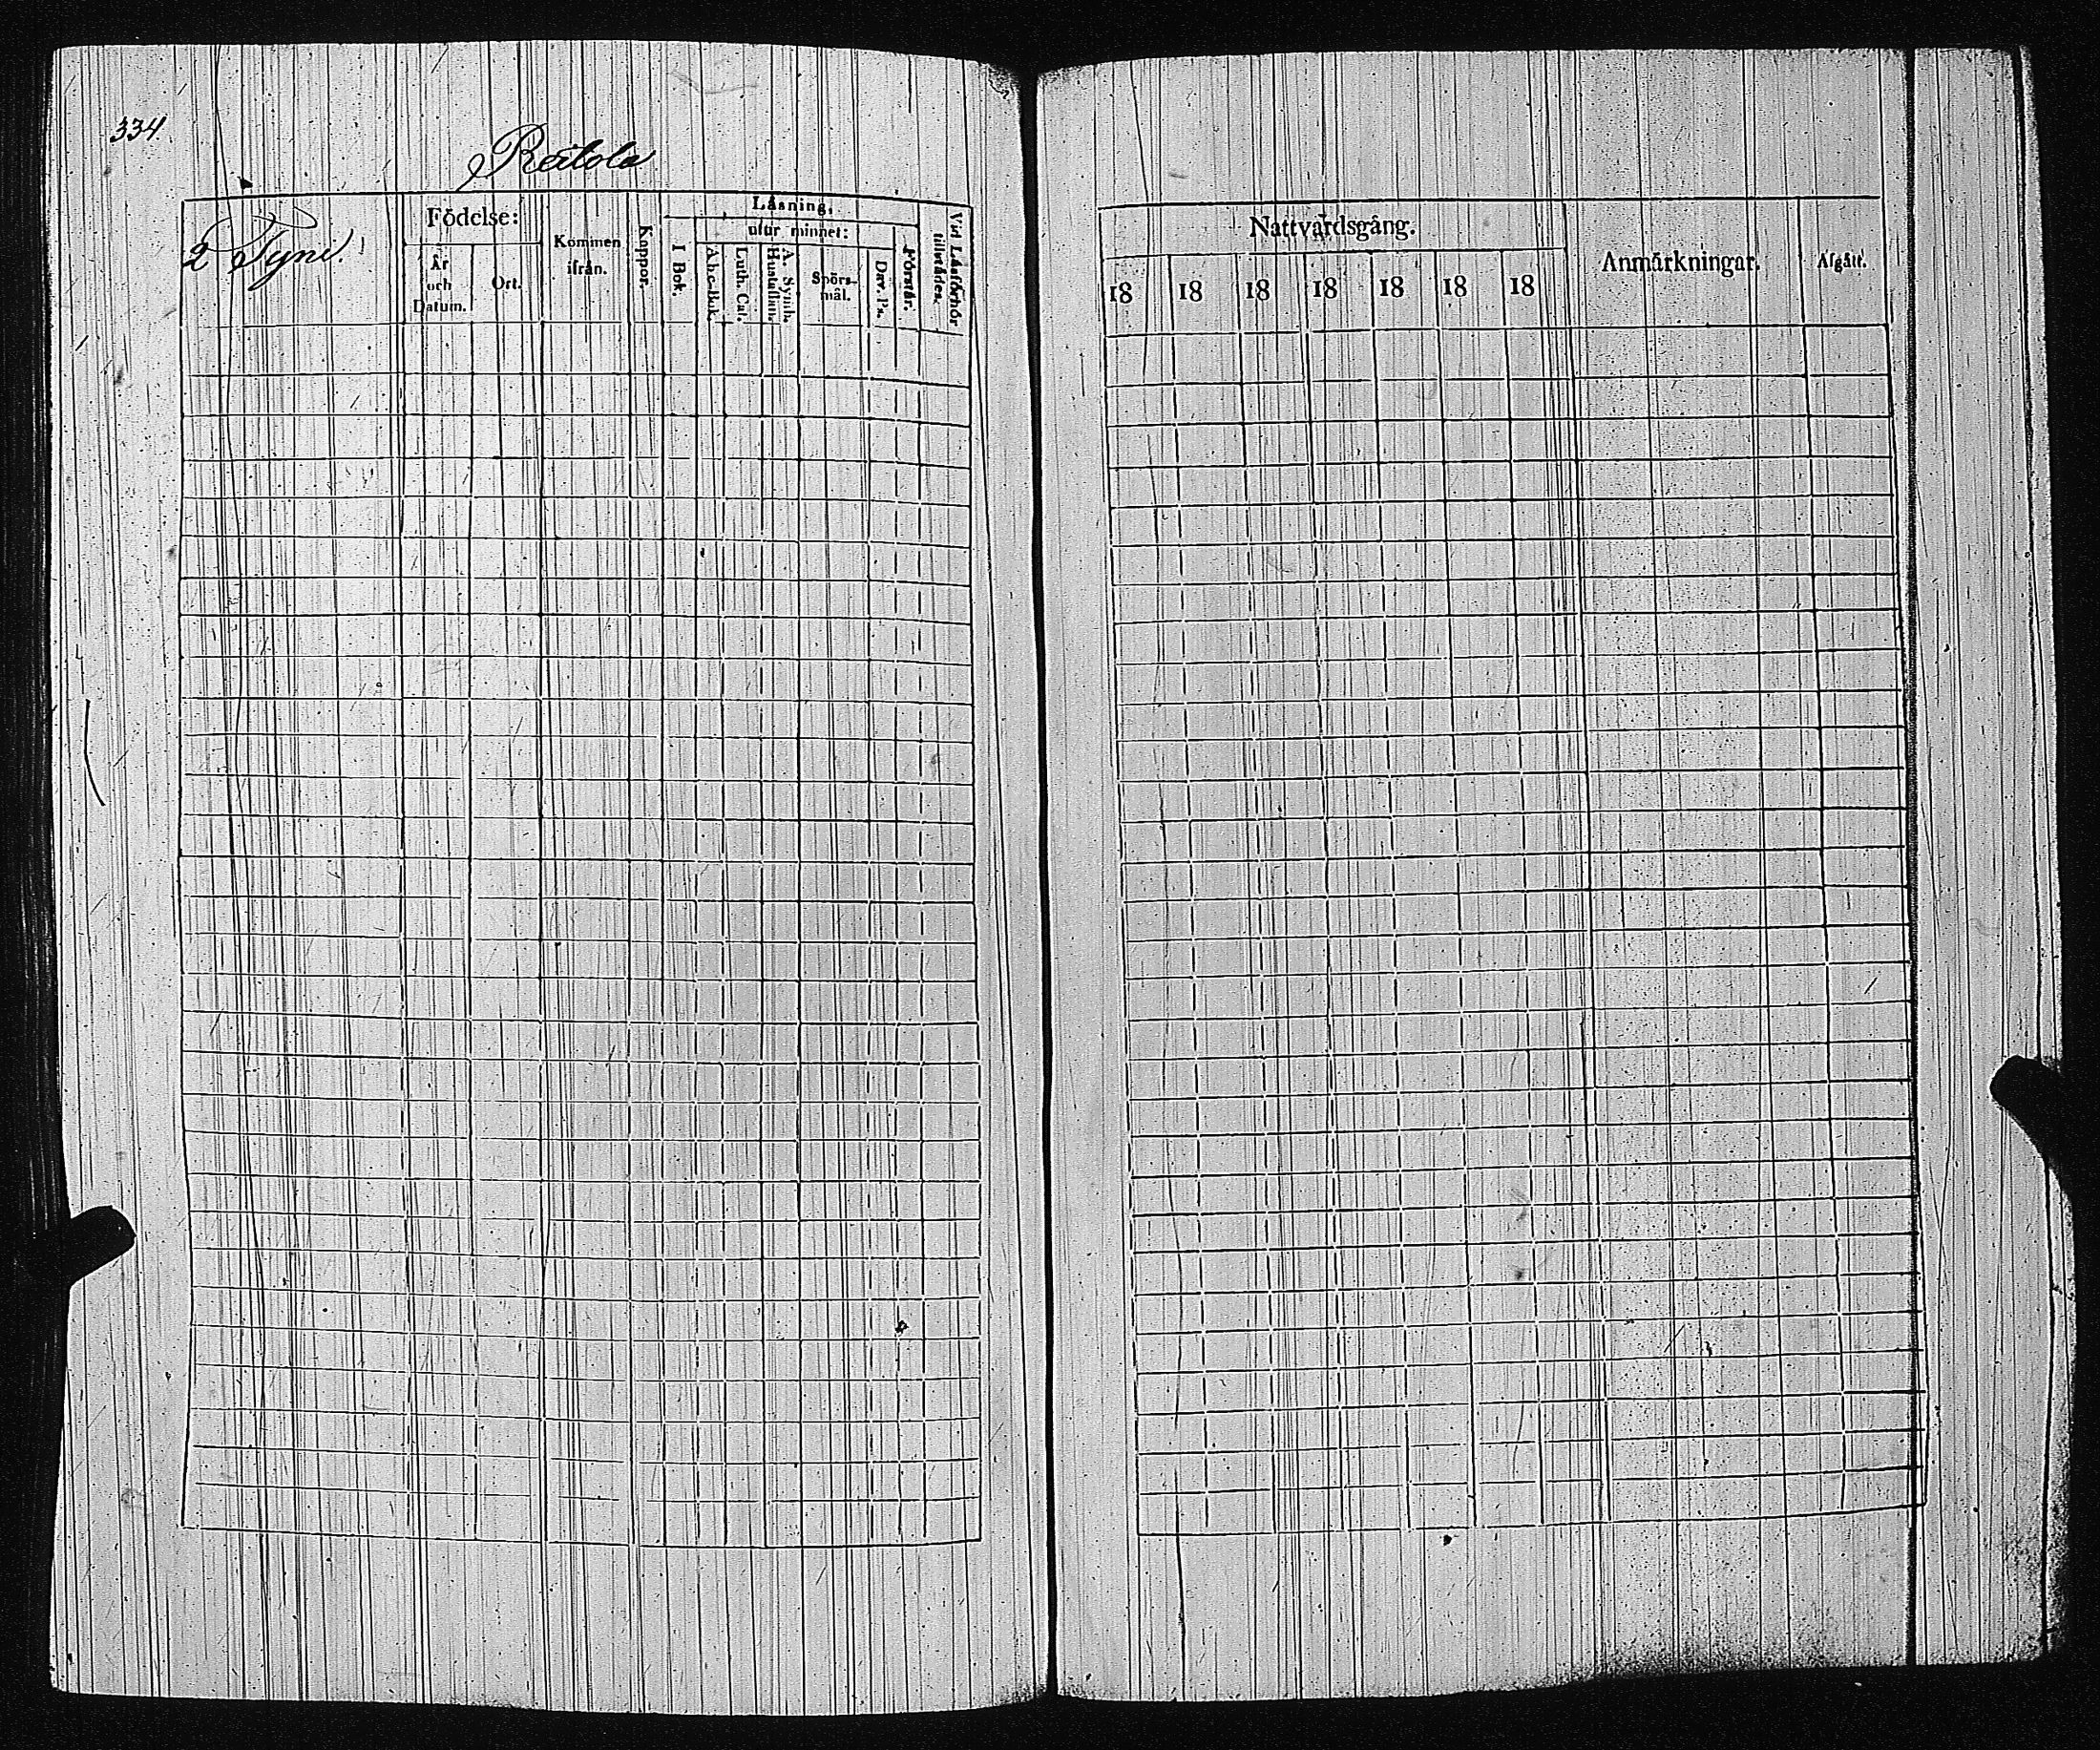 334.
Reitola
2 Tyni.
Födelse:
År och Datum.
Ort.
Kommen ifrån.
Koppor.
Läsning,
I Bok.
utur minnet:
A-b-c-Bok.
Luth. Cat.
A. Symb. Hustaflan.
Spörs-mål.
Dav. Ps.
Förstår.
Vid Läsförhör tillstädes.
Nattvardsgång.
18 18 18 18 18 18 18
Anmärkningar.
Afgått.